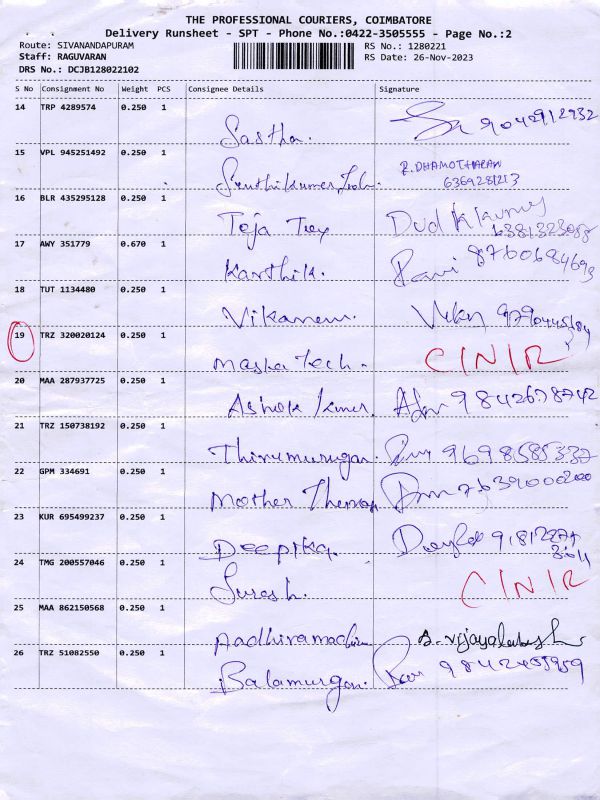 THE PROFESSIONAL COURIERS, COIMBATORE
Delivery Runsheet - SPT - Phone No.:0422-3505555 - Page No.:2
Route: SIVANANDAPURAM
Staff: RAGUVARAN
DRS No.: DCJB128022102
RS No.: 1280221
RS Date: 26-Nov-2023
S No Consignment No Weight PCS Consignee Details Signature
14 TRP 4289574 0.250 1
Sastha.
15 VPL 945251492 0.250 1
R. DHAMOTHARAN
6369281213
16 BLR 435295128 0.250 1
Teja
17 AWY 351779 0.670 1
Karthik. Ravi 8760684693
18 TUT 1134480 0.250 1
19 TRZ 320020124 0.250 1
Masha Tech. C/N/R
20 MAA 287937725 0.250 1
Ashok Kumar. 9842678742
21 TRZ 150738192 0.250 1
Thirumurugan. 9698585337
22 GPM 334691 0.250 1
Mother
23 KUR 695499237 0.250 1
Deepika.
24 TMG 200557046 0.250 1
Suresh. C/N/R
25 MAA 862150568 0.250 1
26 TRZ 51082550 0.250 1
Balamurgan.